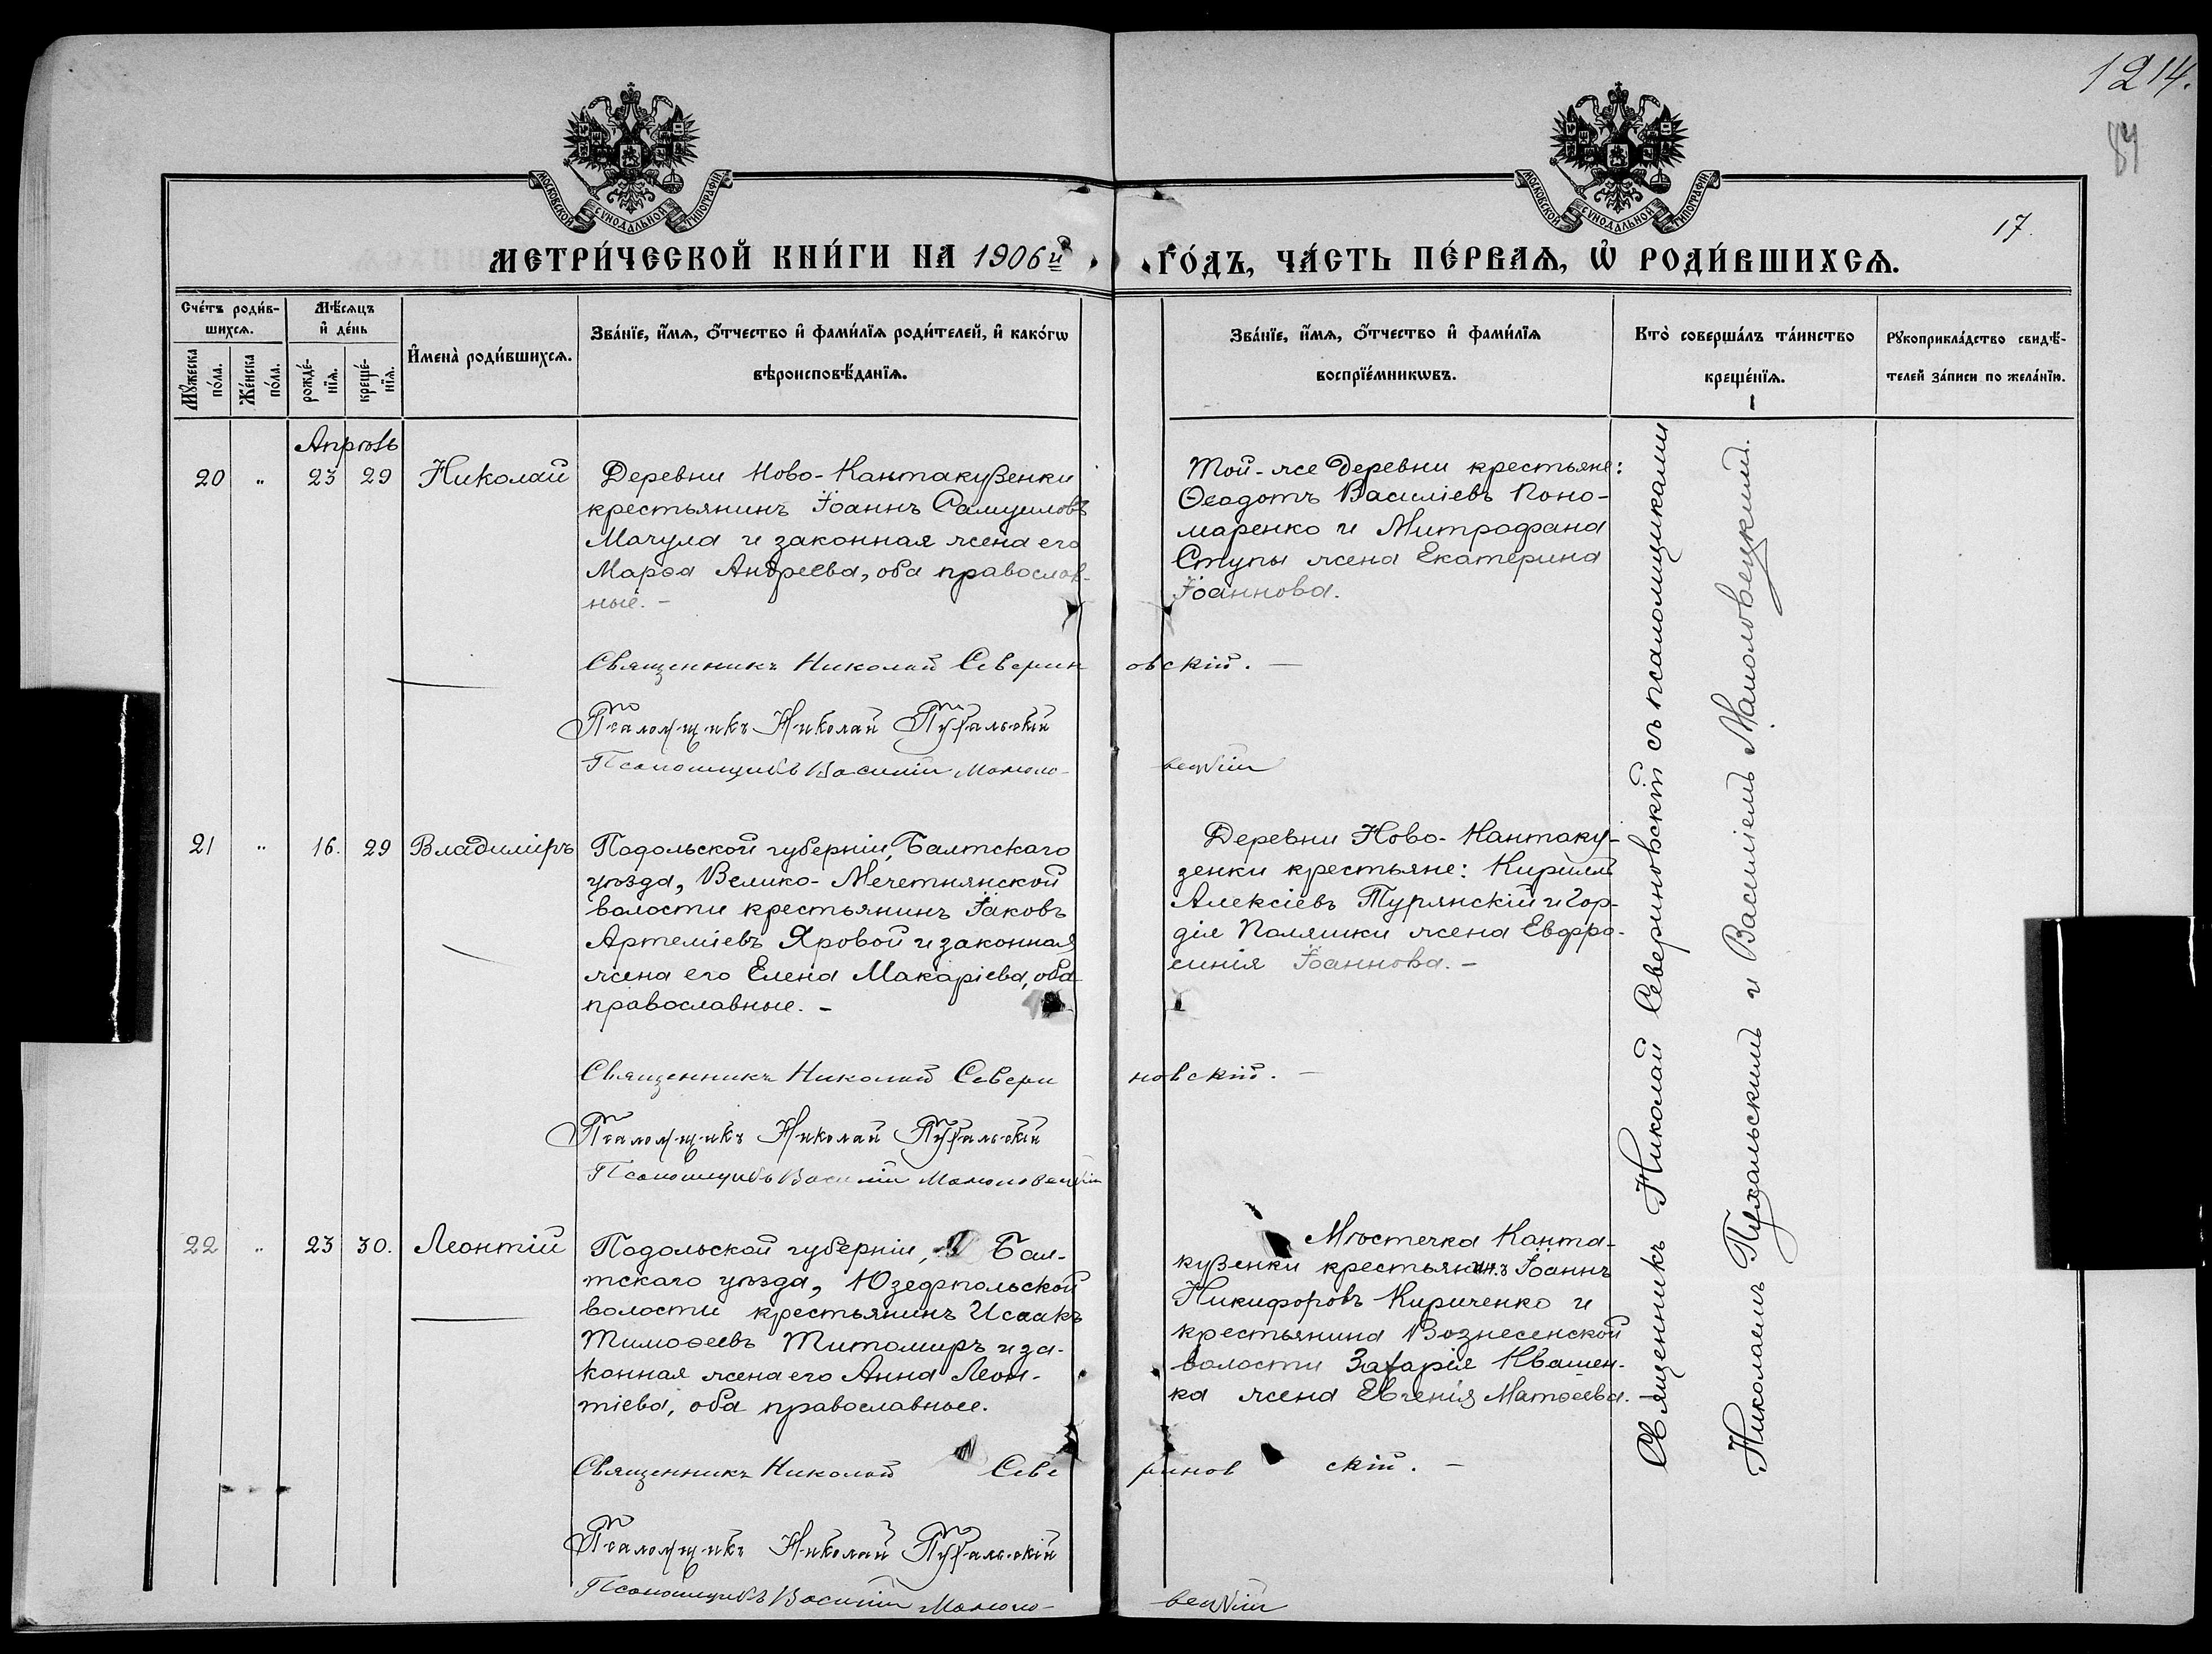 1214.
84
17.
МОСКОВСКОЙ СѴНОДАЛЬНОЙ ТИПОГРАФІИ
МОСКОВСКОЙ СѴНОДАЛЬНОЙ ТИПОГРАФІИ
МЕТРИ́ЧЕСКОЙ КНИ́ГИ НА 1906й
ГО́ДЪ, ЧА́СТЬ ПЕ́РВАѦ, Ѡ РОДИ́ВШИХСѦ.
Сче́тъ роди́в-
шихсѧ.
Мꙋ́жеска
по́ла.
Же́нска
по́ла.
Мѣ́сѧцъ
и҆ де́нь
рожде́-
нїѧ.
креще́-
нїѧ.
И҆мена̀ роди́вшихсѧ.
Зва́нїе, и҆́мѧ, ѻ҆́тчество и҆ фами́лїѧ роди́телей, и҆ како́гѡ
вѣроисповѣ́данїѧ.
Зва́нїе, и҆́мѧ, ѻ҆́тчество и҆ фами́лїѧ
воспрїе́мникѡвъ.
Кто̀ соверша́лъ та́инство
креще́нїѧ.
Рꙋкоприкла́дство свидѣ́-
телей за́писи по жела́нїю.
Апрѣль
20 " 23 29 Николай
Деревни Ново-Кантакузенки
крестьянинъ Іоаннъ Самуиловъ
Мачула и законная жена его
Марѳа Андреева, оба православ-
ные. –
Той-же деревни крестьяне:
Ѳеодотъ Василіевъ Поно-
маренко и Митрофана
Ступы жена Екатерина
Іоаннова.
Священникъ Николай Северин овскій. –
Псаломщикъ Николай Пухальскій
Псаломщикъ Василій Мамоло- вецкій
21 " 16. 29 Владиміръ
Подольской губерніи, Балтскаго
уѣзда, Велико-Мечетнянской
волости крестьянинъ Іаковъ
Артеміевъ Яровой и законная
жена его Елена Макаріева, оба
православные. –
Деревни Ново-Кантаку-
зенки крестьяне: Кириллъ
Алексіевъ Турянскій и Гор-
дія Поляшки жена Евфро-
синія Іоаннова. –
Священникъ Николай Севери новскій. –
Псаломщикъ Николай Пухальскій
Псаломщикъ Василій Мамоловецкій
22 " 23 30. Леонтій
Подольской губерніи, Бал-
тскаго уѣзда, Юзефпольской
волости крестьянинъ Исаакъ
Тимоѳеевъ Титомиръ и за-
конная жена его Анна Леон-
тіева, оба православные.
Мѣстечка Канта-
кузенки крестьянинъ Іоаннъ
Никифоровъ Кириченко и
крестьянина Вознесенской
волости Захарія Квашен-
ка жена Евгенія Матѳеева.
Священникъ Николай Севе ринов скій. –
Псаломщикъ Николай Пухальскій
Псаломщикъ Василій Мамоло- вецкій
Священникъ Николай Севериновскій съ псаломщиками
Николаемъ Пухальскимъ и Василіемъ Мамоловецкимъ.